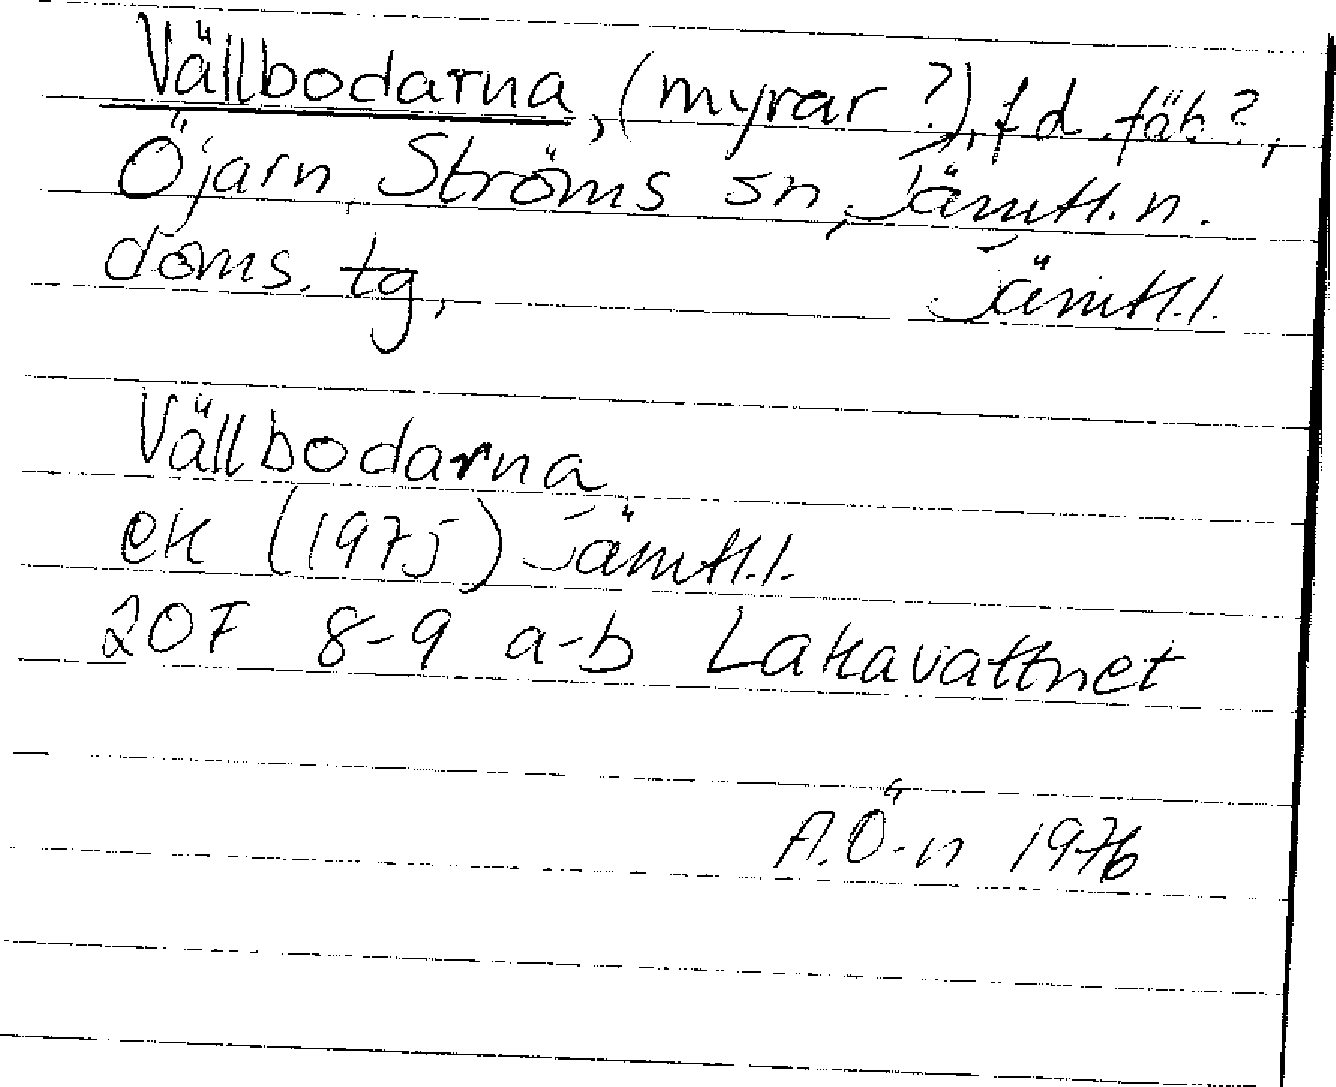 Vällbodarna, (myrar ?), f d fäb?,
Öjarn, Ströms sn, Jämtl. n.
doms. tg, Jämtl. l.
Vällbodarna
ek (1975) Jämtl. l.
20F 8-9 a-b Lakavattnet
A. Ö-n 1976